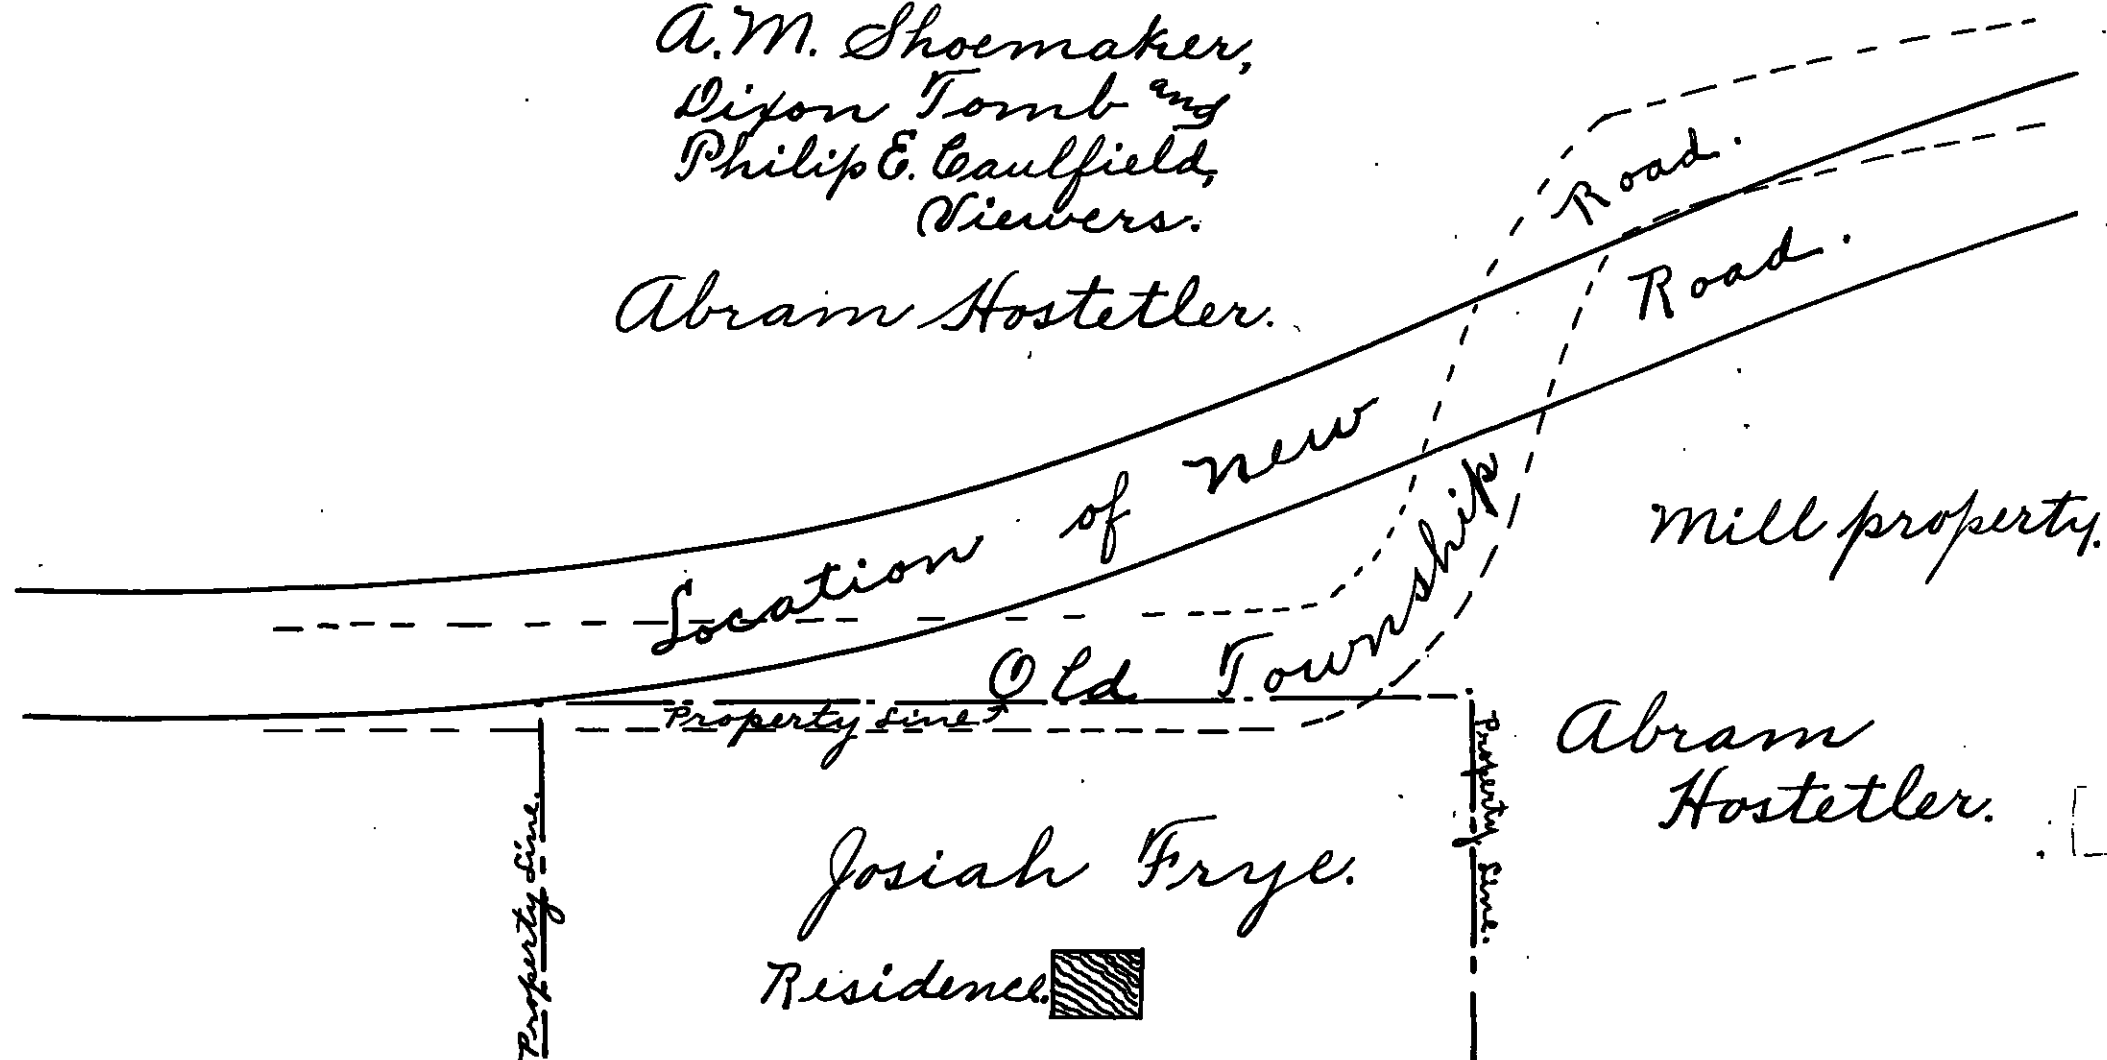 A. M. Shoemaker,
Dixon Tomb and
Philip E. Caulfield,
Viewers.
Abram Hostetler.
Location of New Road.
Old Township Road.
Mill property.
Property Line
Property Line.
Property Line.
Abram
Hostetler.
Josiah Frye.
Residence.